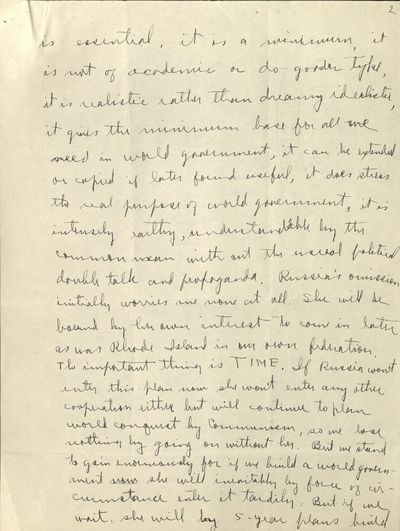 2
is essential, it is a minimum, it
is not of academic or do gooder type,
it is realistic rather than dreamy idealistic,
it gives the minimum base for all we
need in world government, it can be extended
or copied if later found useful, it does stress
the real purpose of world government, it is
intensely earthy, understandable by the
common man with out the usual political
double talk and propaganda. Russia's omission
initially worries me now at all. She will be
bound by her own interest to come in later
as was Rhode Island in our own federation.
The important thing is TIME. If Russia won't
enter this plan now she won't enter any other
cooperation either but will continue to plan
world conquest by Communism, so we lose
nothing by going on without her. But we stand
to gain enormously for if we build a world govern-
ment now she will inevitably by force of cir-
cumstance enter it tardily. But if we
wait, she will by 5-year plans build